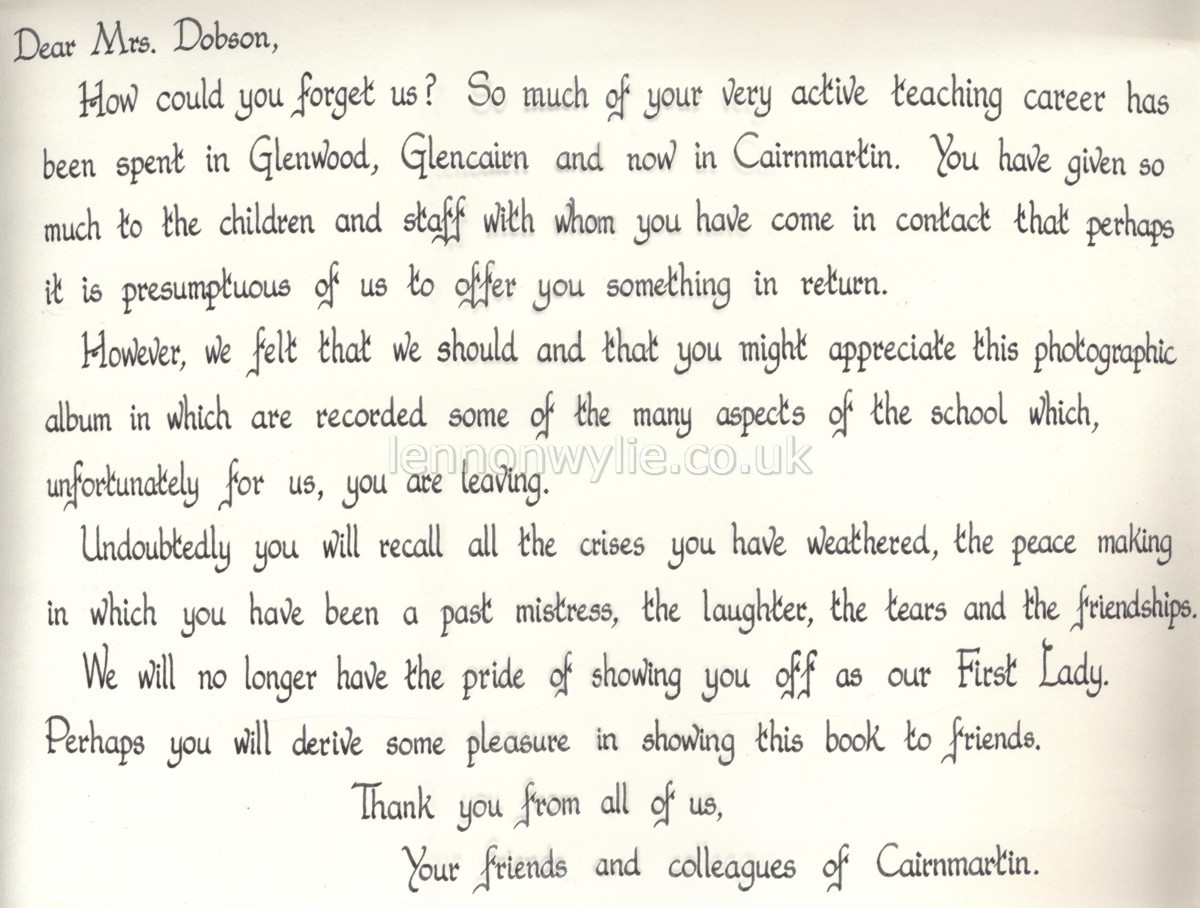 Dear Mrs. Dobson,
How could you forget us? So much of your very active teaching career has
been spent in Glenwood, Glencairn and now in Cairnmartin. You have given so
much to the children and staff with whom you have come in contact that perhaps
it is presumptuous of us to offer you something in return.
However, we felt that we should and that you might appreciate this photographic
album in which are recorded some of the many aspects of the school which,
lennonwylie.co.uk
unfortunately for us, you are leaving.
Undoubtedly you will recall all the crises you have weathered, the peace making
in which you have been a past mistress, the laughter, the tears and the friendships.
We will no longer have the pride of showing you off as our First Lady.
Perhaps you will derive some pleasure in showing this book to friends.
Thank you from all of us,
Your friends and colleagues of Cairnmartin.